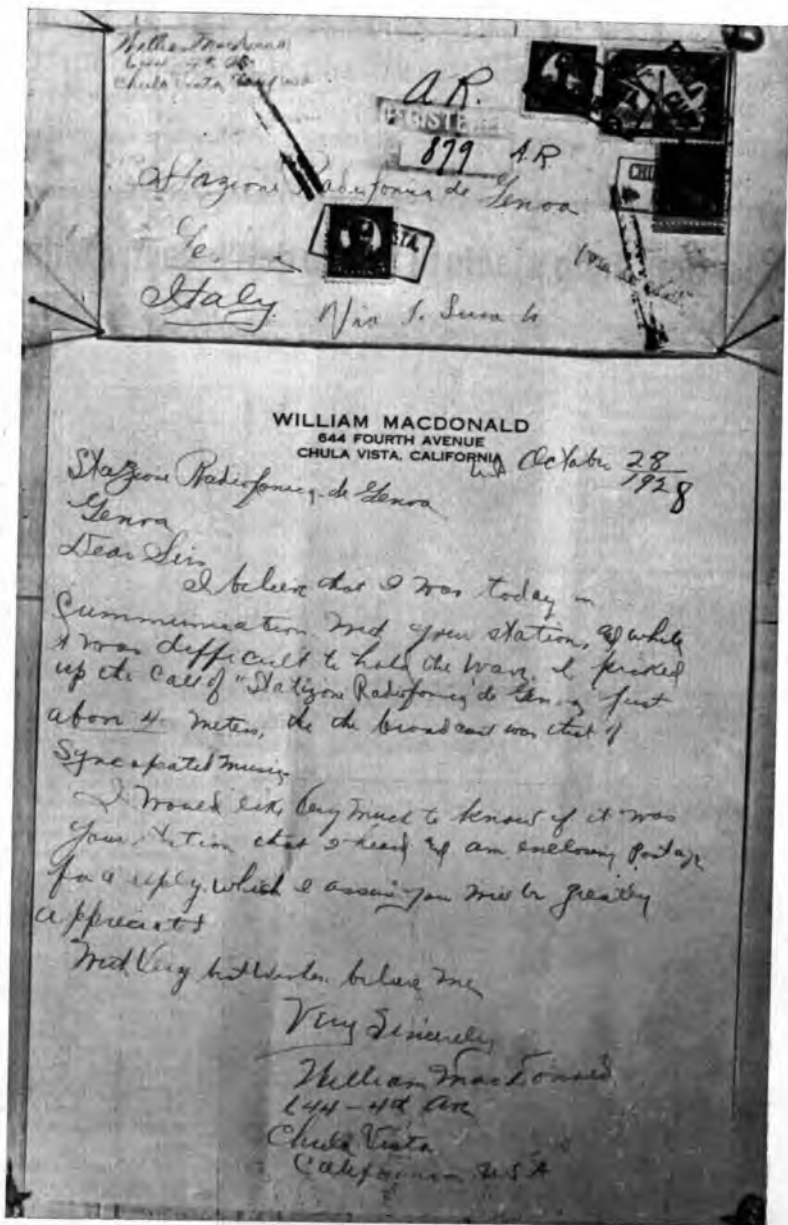 William Macdonald
Chula Vista
A.R.
REGISTERED
879 A.R
Stazione Radiofonica de Genoa
Ge
Italy
Via
WILLIAM MACDONALD
644 FOURTH AVENUE
CHULA VISTA, CALIFORNIA
October 28
1928
Stazione Radiofonica de Genoa
Genoa
Dear Sir
I believe that I was today in
communication with your station, & while
it was difficult to hold the wave, I picked
up the call of "Statizone Radiofonica de Genoa just
above 4 meters, the the broadcast was that of
Syncopated music
I would like very much to know if it was
your station that I heard & am enclosing postage
for a reply which I assure you will be greatly
appreciated
With Very best wishes believe me
Very Sincerely
William Macdonald
644-4th Ave
Chula Vista
California U.S.A